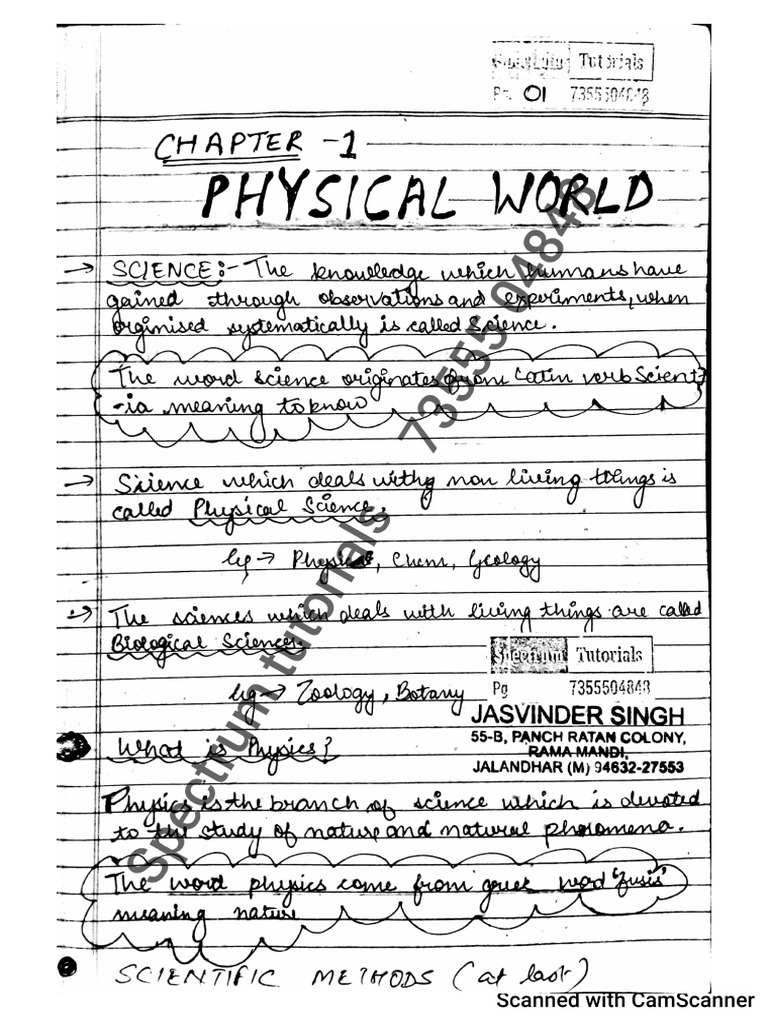 Spectrum Tutorials
Pg. 01 7355504848
CHAPTER -1
PHYSICAL WORLD
→ SCIENCE:- The knowledge which humans have
gained through observations and experiments, when
orginised systematically is called Science.
The word science originates from Latin verb Scient
-ia meaning to know
→ Science which deals with non living things is
called Physical Science.
eg → Physics, Chem, Geology
→ The sciences which deals with living things are called
Biological Sciences.
Spectrum Tutorials
Pg 7355504848
eg → Zoology, Botany
JASVINDER SINGH
55-B, PANCH RATAN COLONY,
RAMA MANDI,
JALANDHAR (M) 94632-27553
What is Physics?
Physics is the branch of science which is devoted
to the study of nature and natural phenomena.
The word physics come from greek word 'fusis'
meaning nature
SCIENTIFIC METHODS (at last)
Spectrum tutorials 73555 04848
Scanned with CamScanner